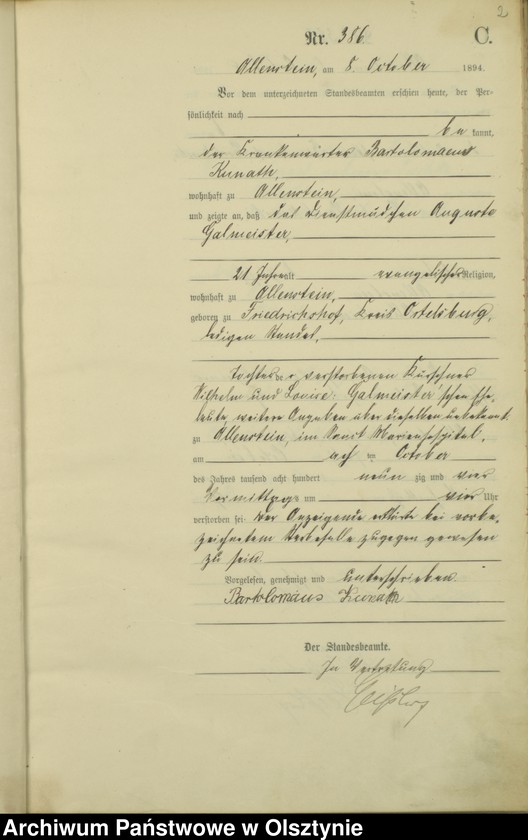 2
Nr. 386 C.
Allenstein, am 8. October 1894.
Vor dem unterzeichneten Standesbeamten erschien heute, der Per-
sönlichkeit nach
be kannt,
der Krankenwärter Bartolomaeus
Kunath,
wohnhaft zu Allenstein,
und zeigte an, daß das Dienstmädchen Auguste
Galmeister,
21 Jahre alt evangelischer Religion,
wohnhaft zu Allenstein,
geboren zu Friedrichshof, Kreis Ortelsburg,
ledigen Standes,
Tochter der verstorbenen Kürschner
Wilhelm und Louise, Galmeister'schen Ehe-
leute, weitere Angaben über dieselben unbekannt
zu Allenstein, im Sanct Marienhospital,
am acht ten October
des Jahres tausend acht hundert neun zig und vier
Vormittags um vier Uhr
verstorben sei. Der Anzeigende erklärte bei vorbe-
zeichnetem Sterbefalle zugegen gewesen
zu sein.
Vorgelesen, genehmigt und unterschrieben
Bartolomäus Kunath
Der Standesbeamte.
In Vertretung
Archiwum Państwowe w Olsztynie